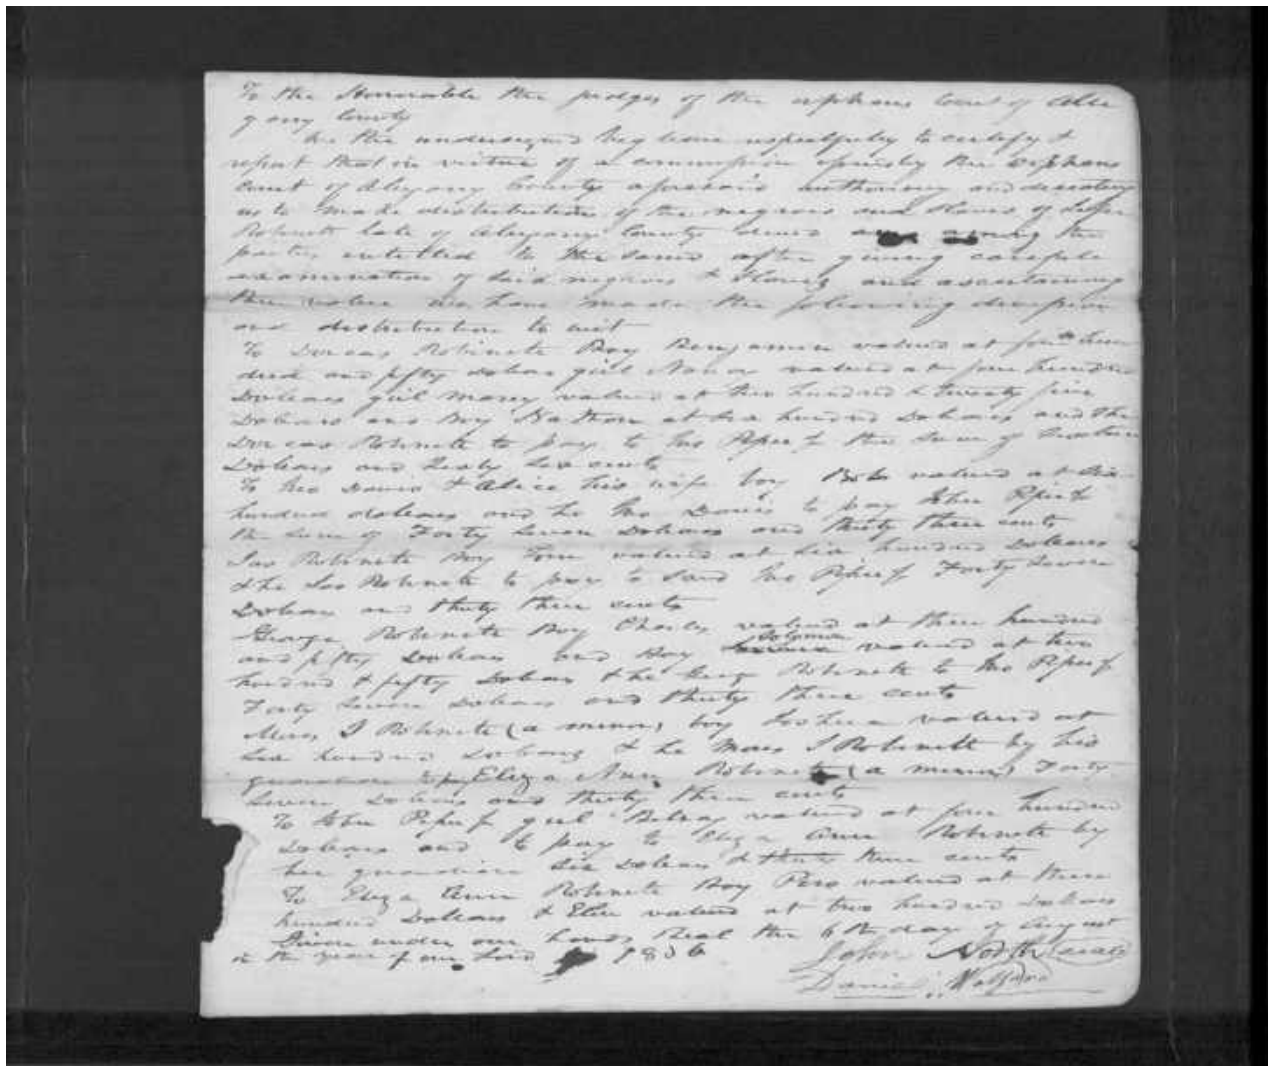 To the Honorable the judges of the orphans Court of Alle
gany County
We the undersigned beg leave respectfully to certify &
report that in virtue of a commission by the orphans
court of Alegany County aforesaid authorising and directing
us to make distribution of the negroes and slaves of
Robinett late of Alegany County among the
parties entitled to the same after giving careful
examination of said negroes & slaves and ascertaining
the value we have made the following division
and distribution to wit
To Dorcas Robinette Boy Benjamin valued at four hun
dred and fifty dolars girl valued at four hundred
Dolears girl valued at two hundred & twenty five
Dolears and Boy Nathan at six hundred Dolears and the
Dorcas Robinette to pay to Jno the sum of
Dolears and Sixty Six cents
To Jno Davis & Alice his wife boy Bob valued at six
hundred dolears and he Jno Davis to pay John
the sum of Forty Seven Dolears and thirty three cents
Jas Robinette Boy Tom valued at six hundred Dolears
& he Jas Robinette to pay to said Jno Forty Seven
Dolears and thirty three cents
George Robinette Boy Charles valued at three hundred
and fifty Dolears and Boy Solomon valued at two
hundred & fifty Dolears & he Geog Robinette to Jno
Forty Seven Dolears and thirty three cents
J Robinette (a minor) boy Joshua valued at
six hundred Dolears & he J Robinett by his
guardian to pay Eliza Ann Robinette (a minor) Forty
Seven Dolears and thirty three cents
To John girl Betsay valued at four hundred
Dolears and to pay to Eliza Ann Robinette by
her guardian six Dolears & thirty three cents
To Eliza Ann Robinette Boy valued at three
hundred Dolears & valued at two hundred Dolears
Given under our hands Seal the 6th day of August
in the year of our Lord 1836
John North (seal)
Daniel